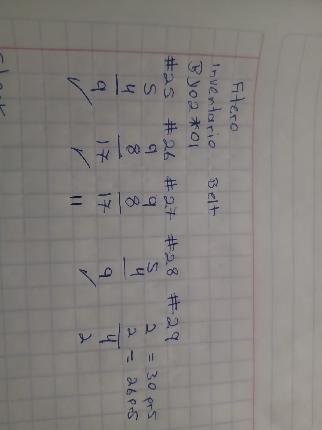 Inventario Belt
#25 #26 #27 #28 #29
5 9 9 5 2 = 30 prs
4 8 8 4 2 = 26 prs
9 17 17 9 4
✓ ✓ 11 ✓ 2